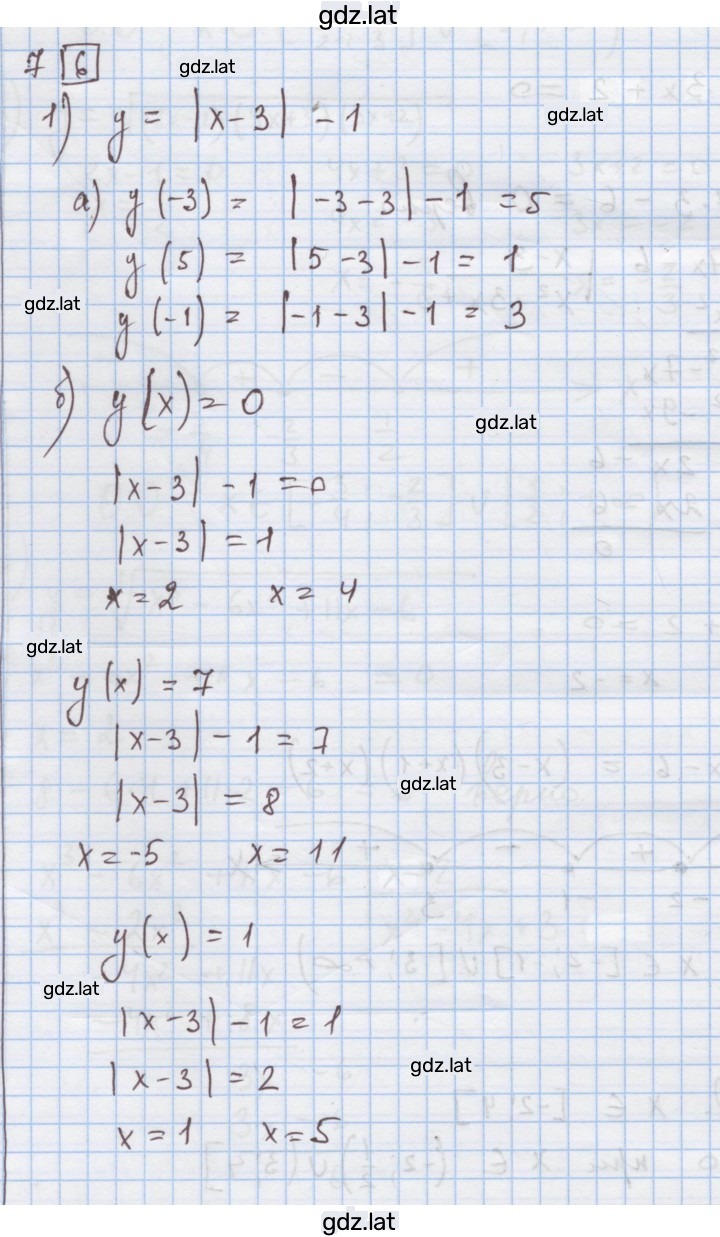 gdz.lat
7 6
gdz.lat
1) y = |x-3| - 1
gdz.lat
а) y(-3) = |-3-3| - 1 = 5
y(5) = |5-3| - 1 = 1
gdz.lat
y(-1) = |-1-3| - 1 = 3
б) y(x) = 0
gdz.lat
|x-3| - 1 = 0
|x-3| = 1
x = 2 x = 4
gdz.lat
y(x) = 7
|x-3| - 1 = 7
gdz.lat
|x-3| = 8
x = -5 x = 11
y(x) = 1
gdz.lat
|x-3| - 1 = 1
gdz.lat
|x-3| = 2
x = 1 x = 5
gdz.lat